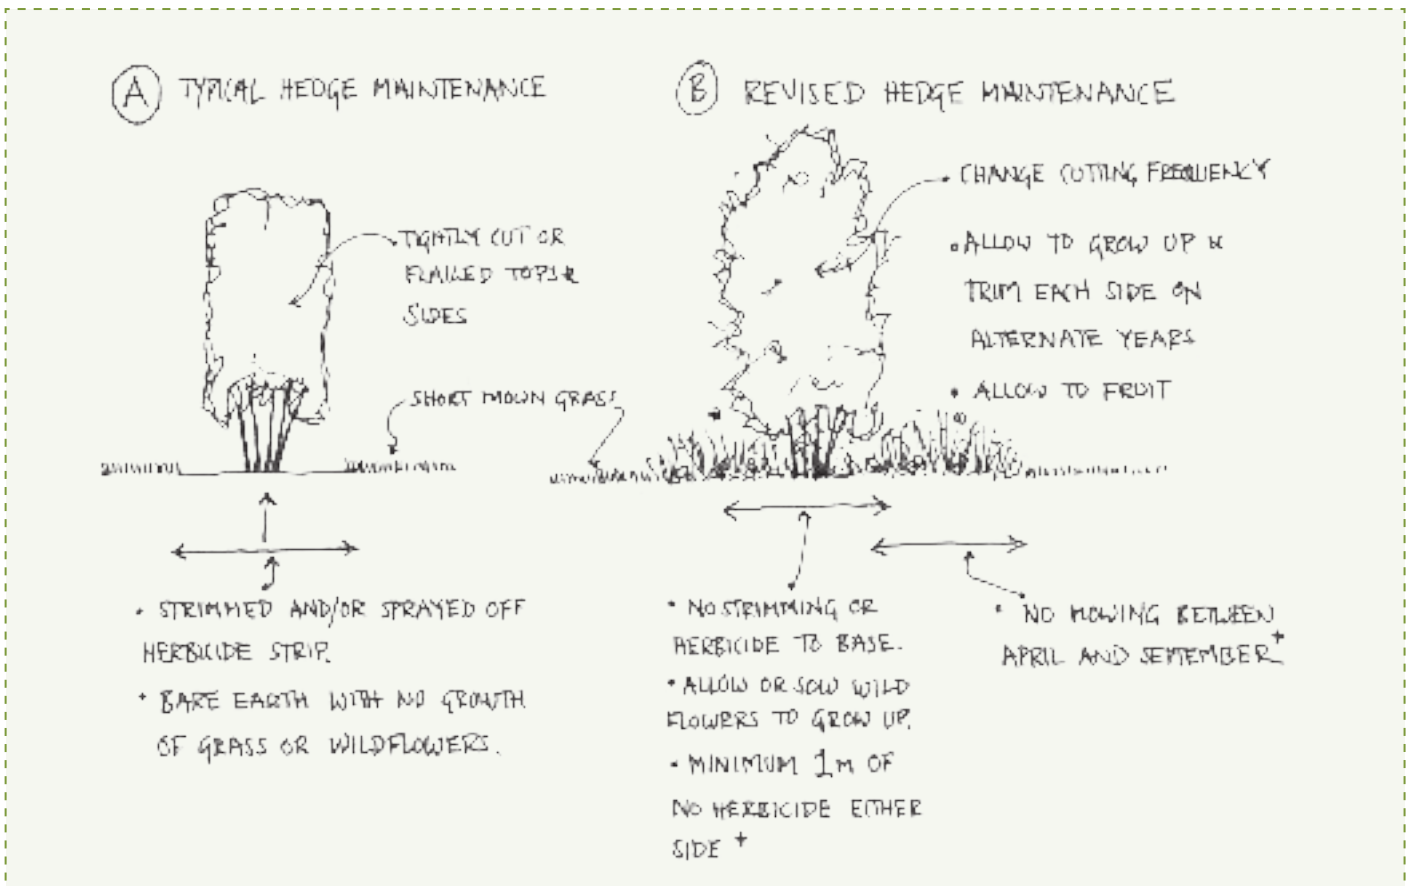 A TYPICAL HEDGE MAINTENANCE
TIGHTLY CUT OR
FLAILED TOPS &
SIDES
SHORT MOWN GRASS
• STRIMMED AND/OR SPRAYED OFF
HERBICIDE STRIP.
• BARE EARTH WITH NO GROWTH
OF GRASS OR WILDFLOWERS.
B REVISED HEDGE MAINTENANCE
• CHANGE CUTTING FREQUENCY
• ALLOW TO GROW UP &
TRIM EACH SIDE ON
ALTERNATE YEARS
• ALLOW TO FRUIT
• NO STRIMMING OR
HERBICIDE TO BASE.
• ALLOW OR SOW WILD
FLOWERS TO GROW UP.
• MINIMUM 1M OF
NO HERBICIDE EITHER
SIDE +
• NO MOWING BETWEEN
APRIL AND SEPTEMBER +